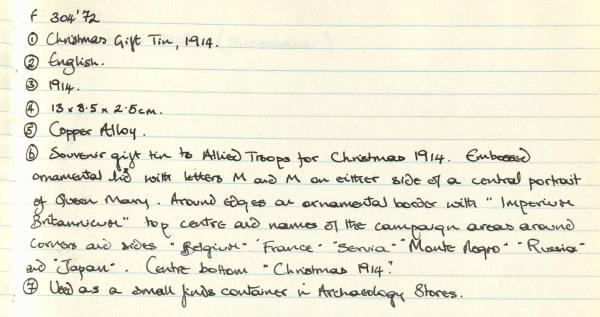 f 304'72
① Christmas Gift Tin, 1914.
② English.
③ 1914.
④ 13 x 8.5 x 2.5cm.
⑤ Copper Alloy.
⑥ Souvenir gift tin to Allied Troops for Christmas 1914. Embossed
ornamental lid with letters M and M on either side of a central portrait
of Queen Mary. Around edges an ornamental border with "Imperium
Britannicum" top centre and names of the campaign areas around
corners and sides "Belgium" "France" "Servia" "Monte Negro" "Russia"
and "Japan". Centre bottom "Christmas 1914".
⑦ Used as a small finds container in Archaeology Stores.